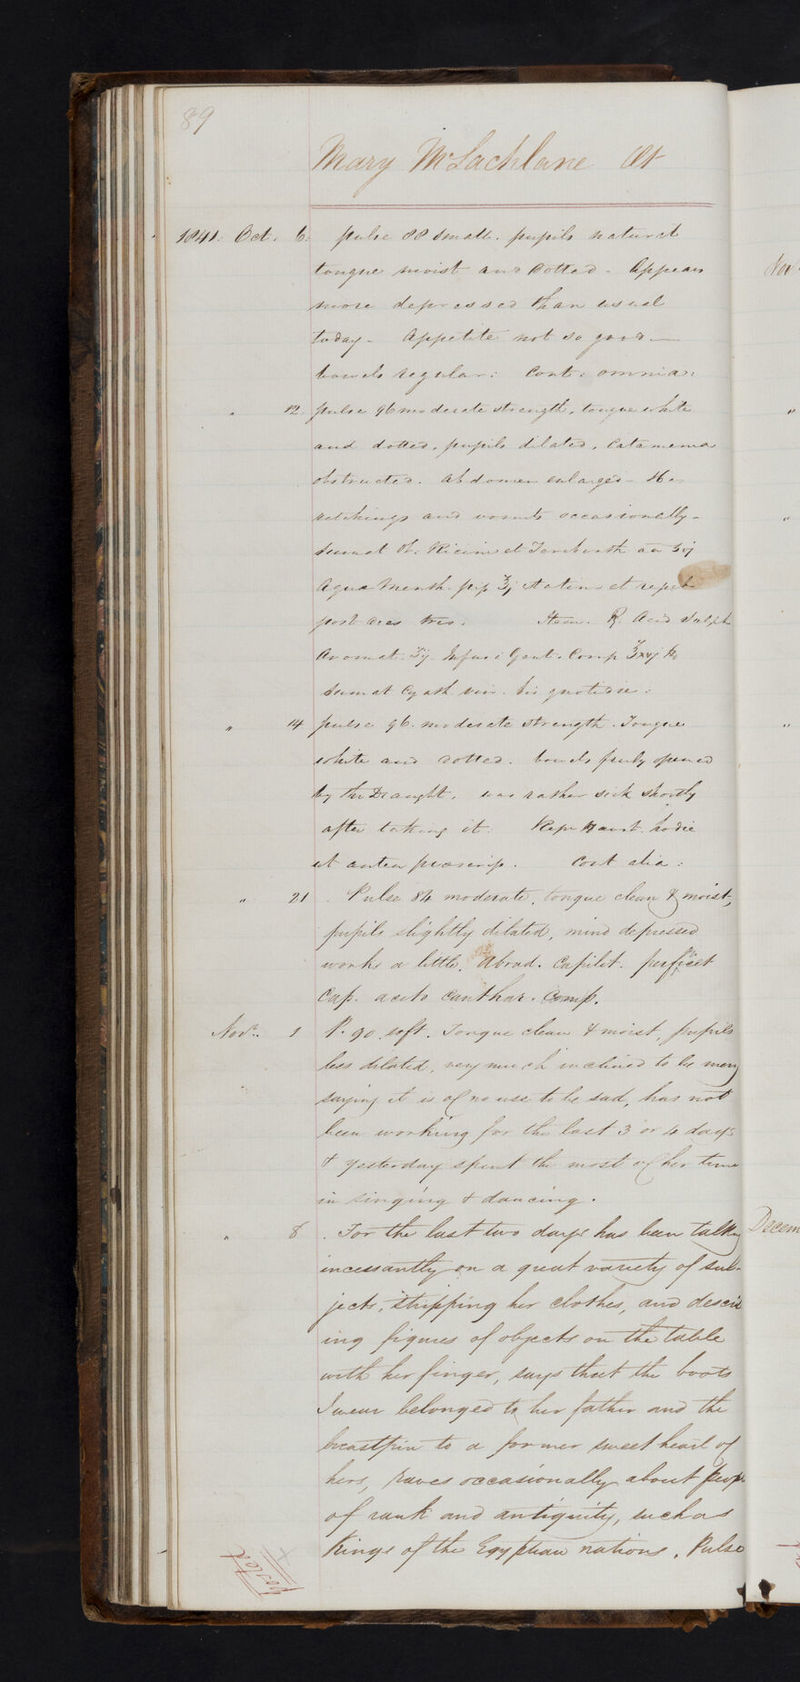 89
Mary McLachlane At
1841. Oct. 6. pulse 88 small. pupils natural
tongue moist and dotted. Appears
more depressed than usual
today - Appetite not so good -
bowels regular: Cont: omnia:
" 12 pulse 96 moderate strength, tongue white
and dotted, pupils dilated, Catamenia
obstructed. Abdomen enlarged - Has
retchings and vomits occasionally -
Sumat Ol. Ricini et Terebinth aa ʒij
Aqua Menth. pip ℥j statim et repet
post horas tres. Item. R. Acid Sulph
Aromat. ʒij Infus: Gent. Comp ℥xvj
Sumat Cyath vin. bis quotidie:
" 14 pulse 96. moderate strength. Tongue
white and dotted. bowels freely opened
by the Draught. was rather sick shortly
after taking it. Repr Haust. hodie
ut antea præscrip. Cont alia:
" 21 . Pulse 84 moderate, tongue clean & moist,
pupils slightly dilated, mind depressed
works a little. Abrad. Capilit. perfricet
Cap. aceto canthar. Comp.
Novr. 1 P. 90. soft. Tongue clean & moist, pupils
less dilated, very much inclined to be merry
saying it is of no use to be sad, has not
been working for the last 3 or 4 days
& yesterday spent the most of her time
in singing & dancing.
" 8 . For the last two days has been talking
incessantly on a great variety of sub-
jects, stripping her clothes, and
ing figures of objects on the table
with her finger, says that the boots
I wear belonged to her father and the
breastpin to a former sweet heart of
hers, raves occasionally about
of rank and antiquity, such as
Kings of the Egyptian nations. Pulse
Nov
"
"
"
Decem